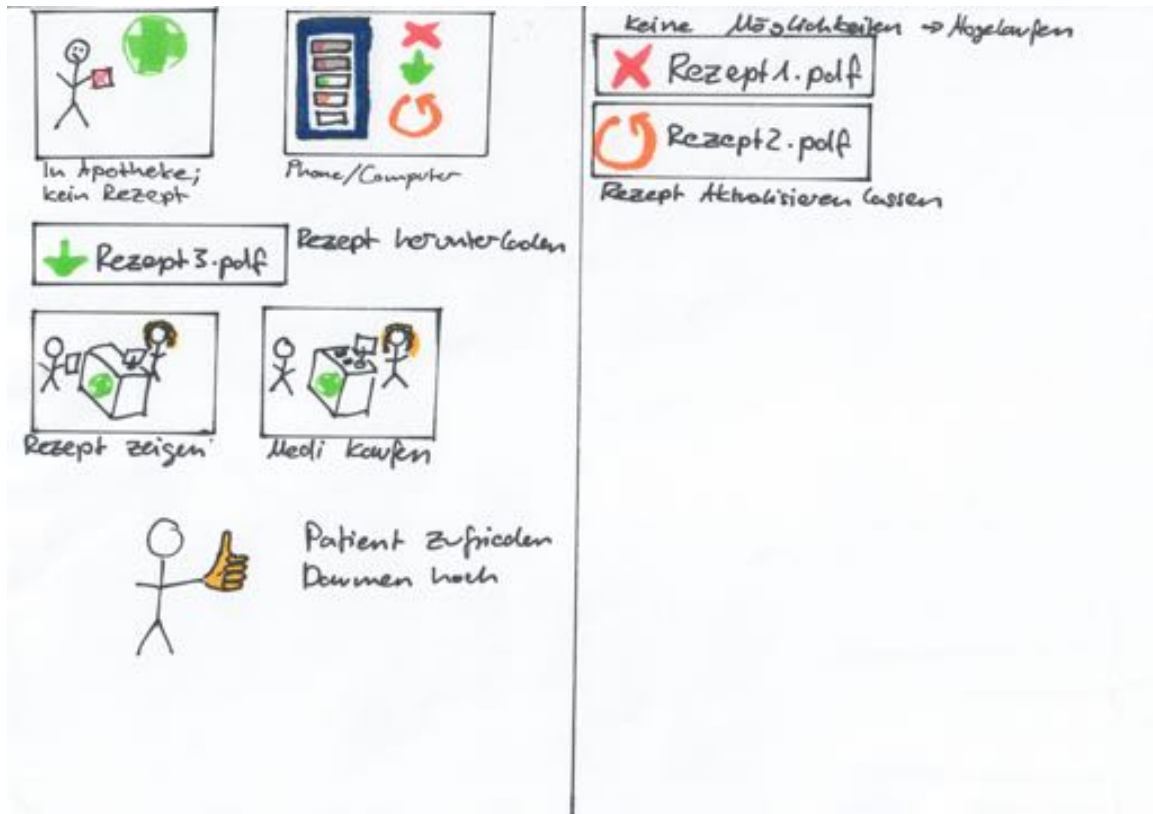 In Apotheke;
kein Rezept
Phone/Computer
Rezept3.pdf
Rezept herunterladen
Rezept zeigen
Medi kaufen
Patient zufrieden
Daumen hoch
keine Möglichkeiten → Abgelaufen
Rezept1.pdf
Rezept2.pdf
Rezept Aktualisieren lassen